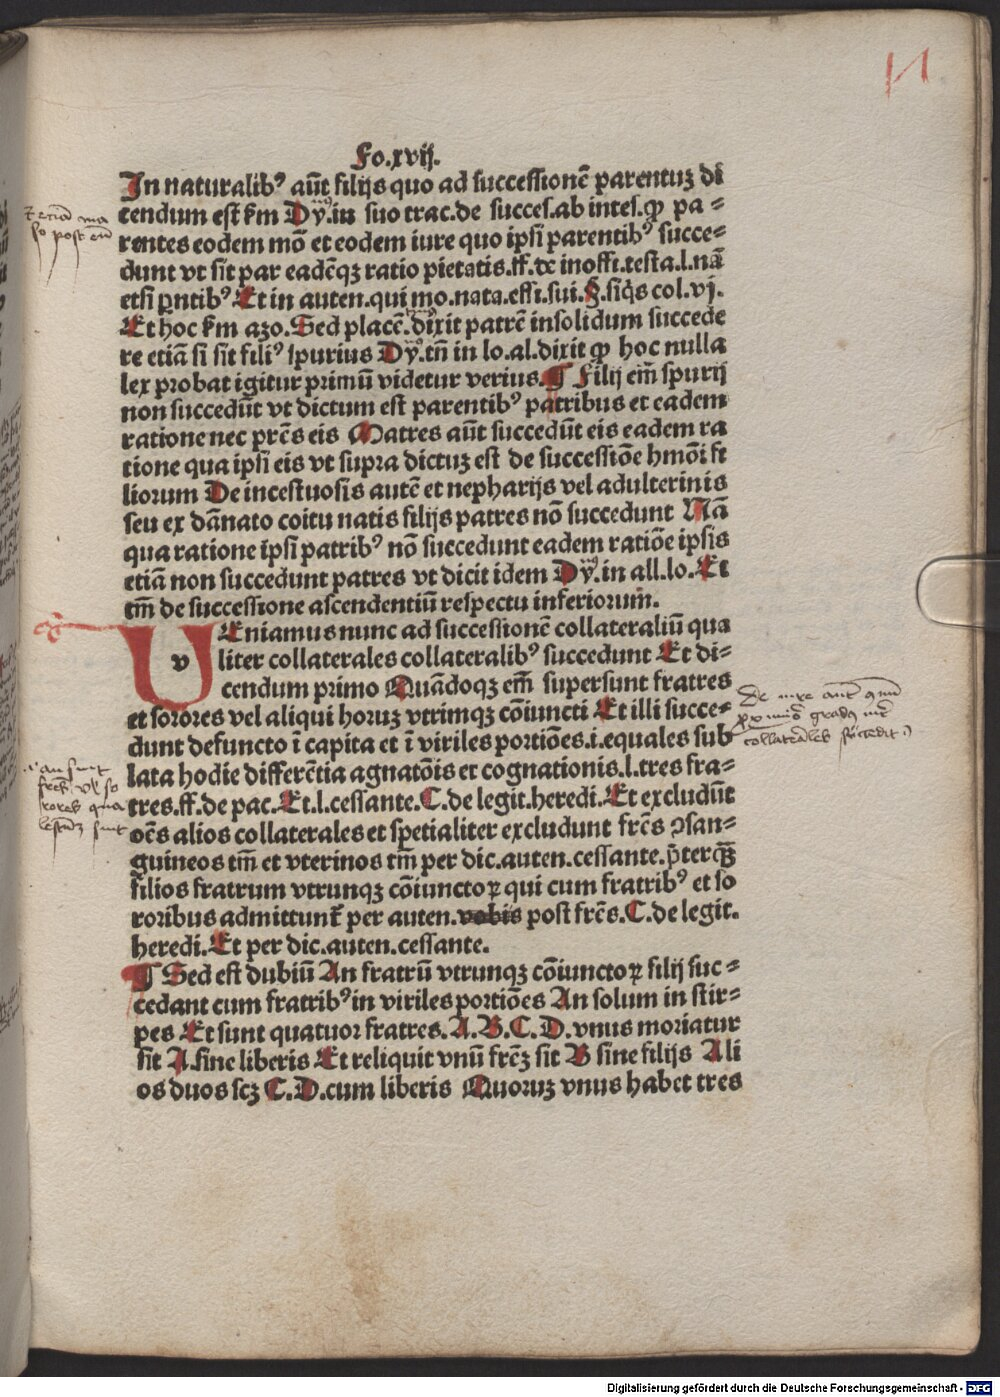 Fo.xvij.
In naturalibꝰ aūt filijs quo ad successionē parentuꝫ di
cendum est ẜm Dy̎.in suo trac.de succes.ab intes.ꝙ pa⸗
rentes eodem mō et eodem iure quo ipsi parentibꝰ succe⸗
dunt vt sit par eadēqꝫ ratio pietatis.ff.de inoffi.testa.l.nā
etsi pͣntibꝰ.Et in auten.qui mo.nata.effi.sui.§.siq̇s col.vj.
Et hoc ẜm azo.Sed placē.dixit patrē insolidum succede
re etiā si sit filiꝰ spurius Dy̎.tn̄ in lo.al.dixit ꝙ hoc nulla
lex probat igitur primū videtur verius.¶ Filij em̄ spurij
non succedūt vt dictum est parentibꝰ patribus et eadem
ratione nec prēs eis Matres aūt succedūt eis eadem ra
tione qua ipsi eis vt supra dictuꝫ est de successiōe hmōi fi
liorum De incestuosis autē et nepharijs vel adulterinis
seu ex dānato coitu natis filijs patres nō succedunt Nā
qua ratione ip̄si patribꝰ nō succedunt eadem ratiōe ipsis
etiā non succedunt patres vt dicit idem Dy̎.in all.lo.Et
tm̄ de successione ascendentiū respectu inferiorum.
VEniamus nunc ad successionē collateraliū qua
v liter collaterales collateralibꝰ succedunt Et di⸗
cendum primo Quādoqꝫ em̄ supersunt fratres
et sorores vel aliqui horuꝫ vtrimqꝫ cōiuncti Et illi succe⸗
dunt defuncto ī capita et ī viriles portiōes.i.equales sub
lata hodie differētia agnatōis et cognationis.l.tres fra⸗
tres.ff.de pac.Et.l.cessante.C.de legit.heredi.Et excludūt
oēs alios collaterales et spetialiter excludunt frēs ꝯsan⸗
guineos tm̄ et vterinos tm̄ per dic.auten.cessante.p̄terqꝫ̄
filios fratrum vtrunqꝫ cōiunctoꝝ qui cum fratribꝰ et so
roribus admittunt᷑ per auten.vobis post frēs.C.de legit.
heredi.Et per dic.auten.cessante.
¶ Sed est dubiū An fratrū vtrunqꝫ cōiunctoꝝ filij suc⸗
cedant cum fratribꝰ in viriles portiōes An solum in stir⸗
pes Et sunt quatuor fratres.A.B.C.D.vnus moriatur
sit A.sine liberis Et reliquit vnū frēꝫ sit B sine filijs Ali
os duos scꝫ C.D.cum liberis Quoruꝫ vnus habet tres
Digitalisierung gefördert durch die Deutsche Forschungsgemeinschaft - DFG